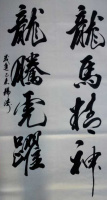 龍馬精神
龍騰虎躍